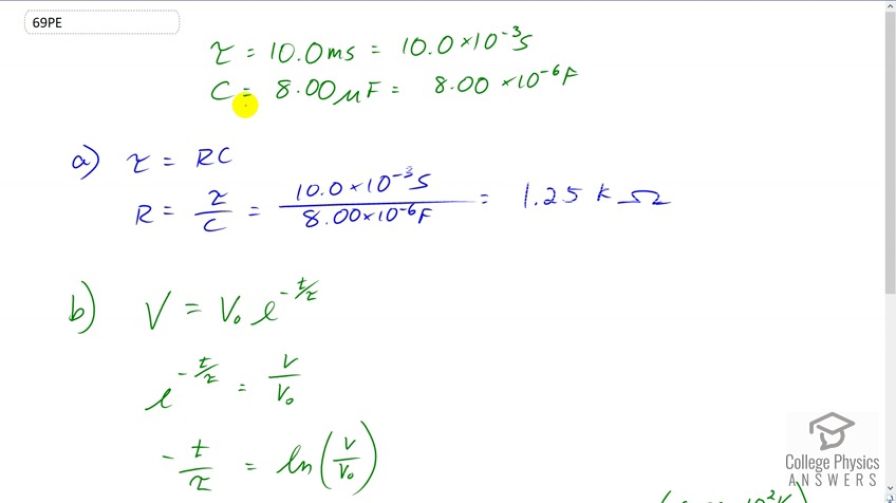 69PE
τ = 10.0ms = 10.0×10⁻³s
C = 8.00μF = 8.00×10⁻⁶F
a) τ = RC
R = τ/C = 10.0×10⁻³s/8.00×10⁻⁶F = 1.25 kΩ
b) V = V₀e^(-t/τ)
e^(-t/τ) = V/V₀
-t/τ = ln(V/V₀)
College Physics
ANSWERS